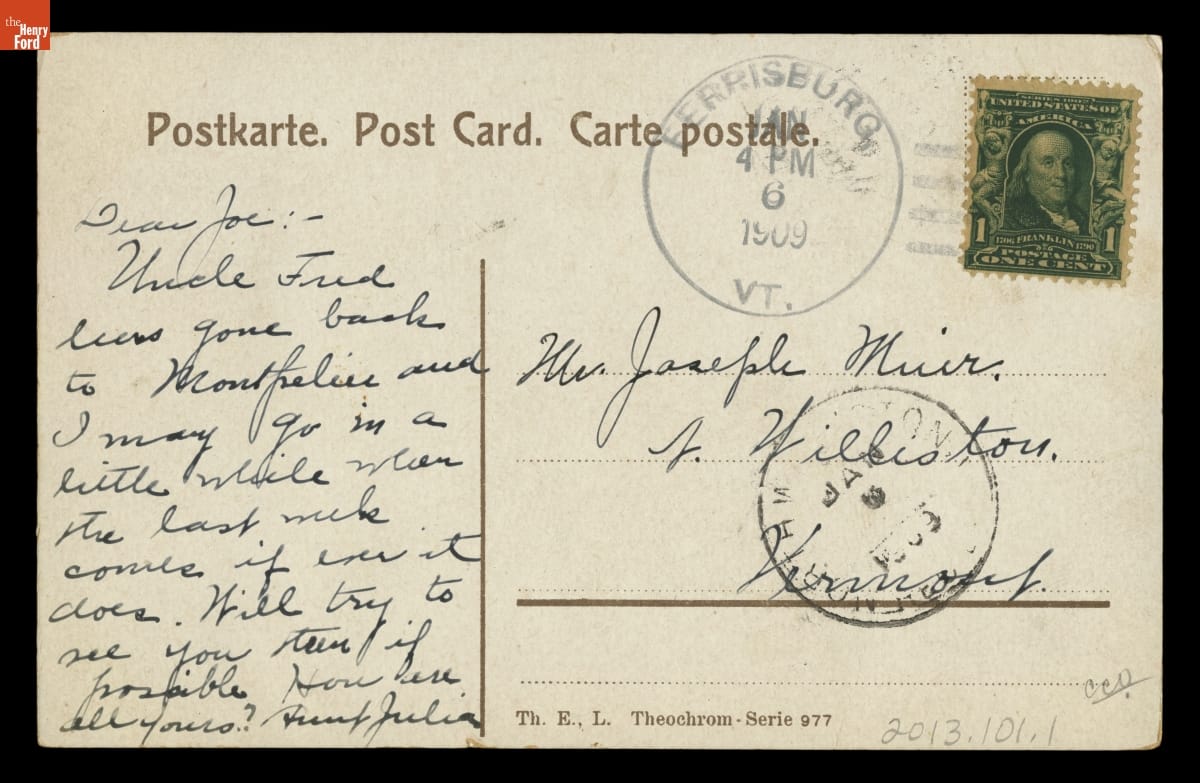 the
Henry
Ford
Postkarte. Post Card. Carte postale.
FERRISBURG,
JAN
4 PM
6
1909
VT.
SERIES 1902
UNITED STATES OF
AMERICA
1 1706 FRANKLIN 1790 1
POSTAGE
ONE CENT
Dear Joe:-
Uncle Fred
has gone back
to Montpelier and
I may go in a
little while when
the last week
comes if ever it
does. Will try to
see you then if
possible How are
all yours? Aunt Julia
Mr. Joseph Muir.
N. Williston.
Vermont.
JAN
Th. E., L. Theochrom-Serie 977
2013.101.1